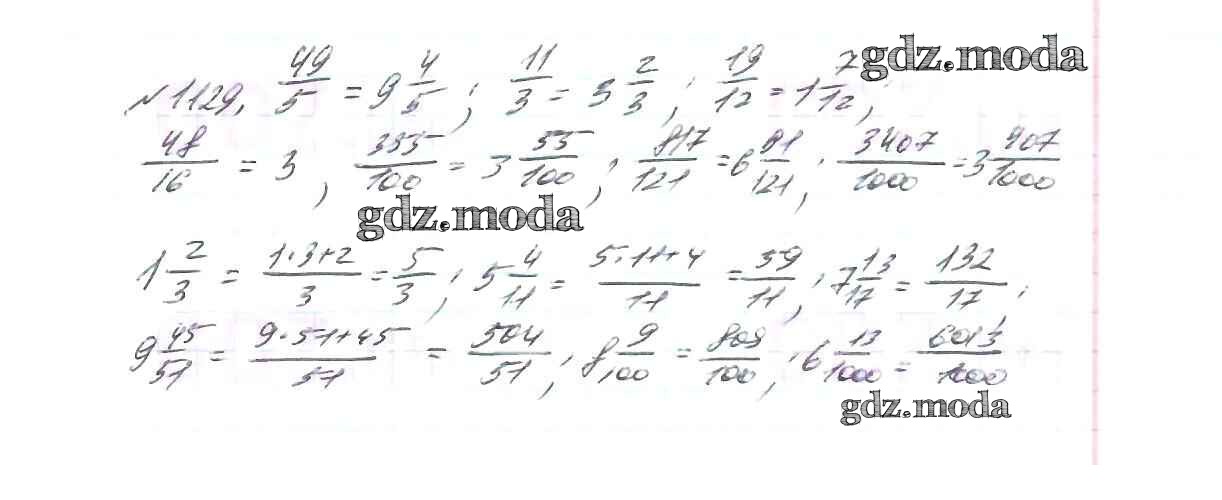 №1129. 49/5 = 9 4/5; 11/3 = 3 2/3; 19/12 = 1 7/12; gdz.moda
48/16 = 3, 355/100 = 3 55/100; 817/121 = 6 91/121; 3407/1000 = 3 407/1000
gdz.moda
1 2/3 = 1·3+2/3 = 5/3; 5 4/11 = 5·11+4/11 = 59/11; 7 13/17 = 132/17;
9 45/51 = 9·51+45/51 = 504/51; 8 9/100 = 809/100; 6 13/1000 = 6013/1000
gdz.moda